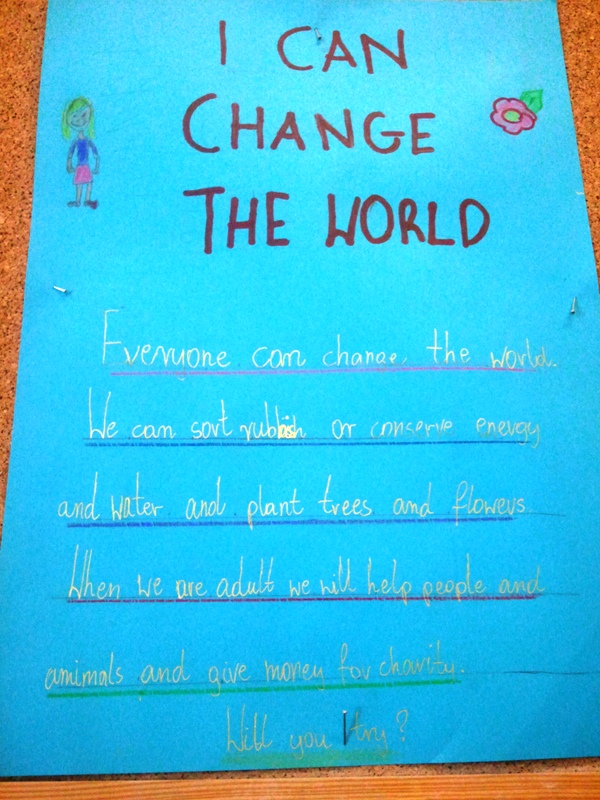 I CAN
CHANGE
THE WORLD
Everyone can change the world.
We can sort rubbish or conserve energy
and water and plant trees and flowers
When we are adult we will help people and
amimals and give money for charity.
Will you try?